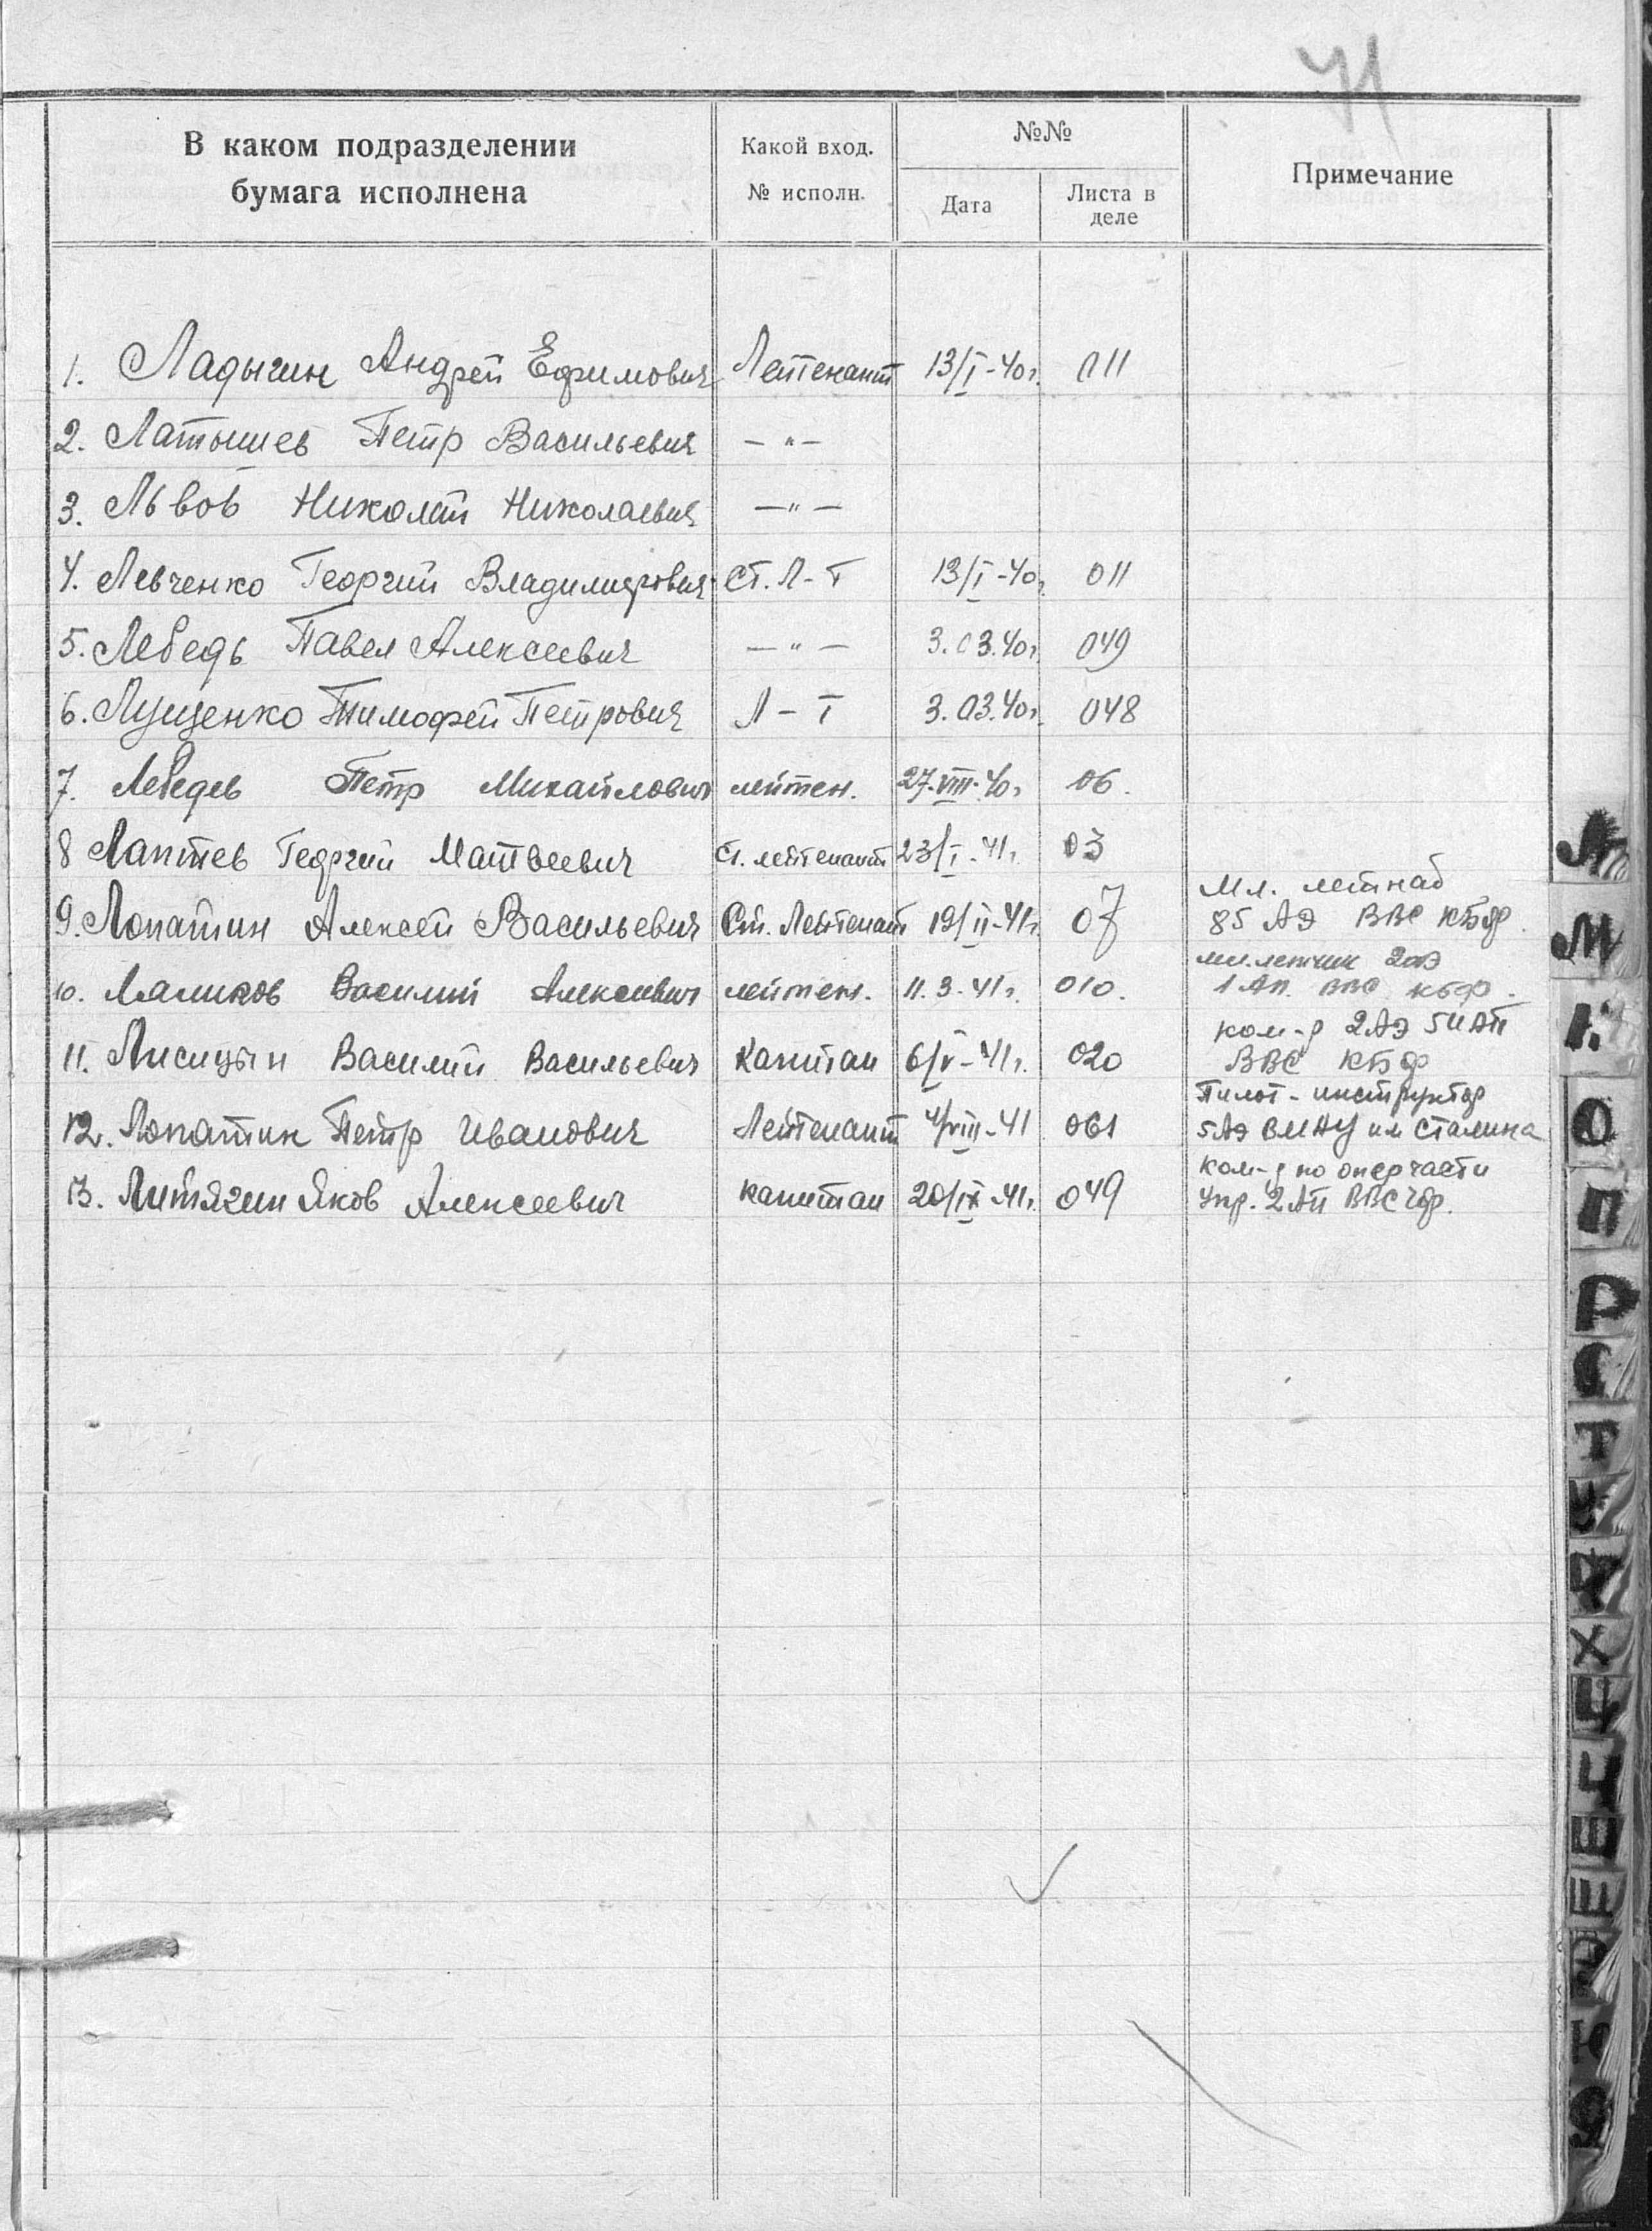 71
В каком подразделении бумага исполнена
Какой вход. № исполн.
№№
Дата
Листа в деле
Примечание
1. Ладыгин Андрей Ефимович Лейтенант 13/I-40г. 011
2. Латышев Петр Васильевич — " —
3. Львов Николай Николаевич — " —
4. Левченко Георгий Владимирович Ст. Л-т 13/I-40г. 011
5. Лебедь Павел Алексеевич — " — 3.03.40г. 049
6. Лущенко Тимофей Петрович Л-т 3.03.40г. 048
7. Лебедев Петр Михайлович лейтен. 27.VIII.40г. 06.
8 Лаптев Георгий Матвеевич Ст. лейтенант 23/I-41г. 03
9. Лопатин Алексей Васильевич Ст. Лейтенант 19/II-41г. 07 Мл. летнаб
85 АЭ ВВС КБФ.
10. Лаликов Василий Алексеевич лейтен. 11.3.41г. 010. мл. летчик 2аэ
1 АП. ВВС КБФ.
11. Лисицын Василий Васильевич Капитан 6/V-41г. 020 ком-р 2АЭ 5ИАП
ВВС КБФ
12. Лопатин Петр Иванович Лейтенант 4/VIII-41 061 Пилот-инструктор
5АЭ ВМАУ им Сталина
13. Литягин Яков Алексеевич капитан 20/IX-41г. 049 ком-р по оперчасти
Упр. 2АП ВВС ЧФ.
Л
М
Н
О
П
Р
С
Т
У
Ф
Х
Ц
Ч
Ш
Щ
Э
Ю
Я